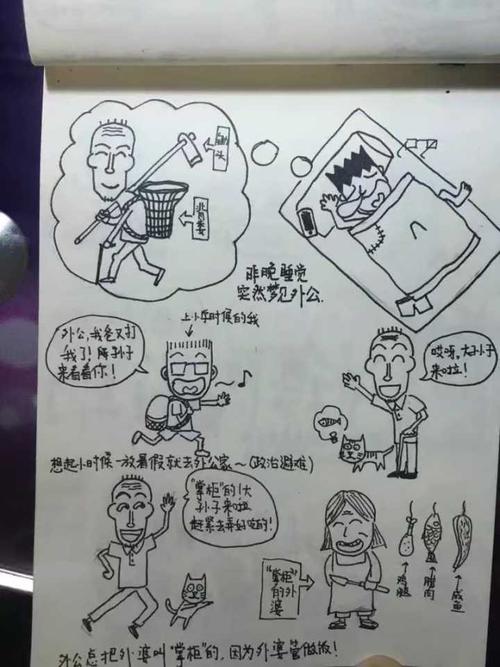 锄头
背篓
昨晚睡觉
突然梦见外公.
上小学时候的我
外公,我爸又打
我了!胖孙子
来看看你!
哎呀,大孙子
来啦!
想起小时候一放暑假就去外公家~(政治避难)
"掌柜"的!大
孙子来啦
赶紧去弄好吃的!
"掌柜"
的外
婆
鸡腿
腊肉
咸鱼
外公总把外婆叫"掌柜"的,因为外婆管做饭!